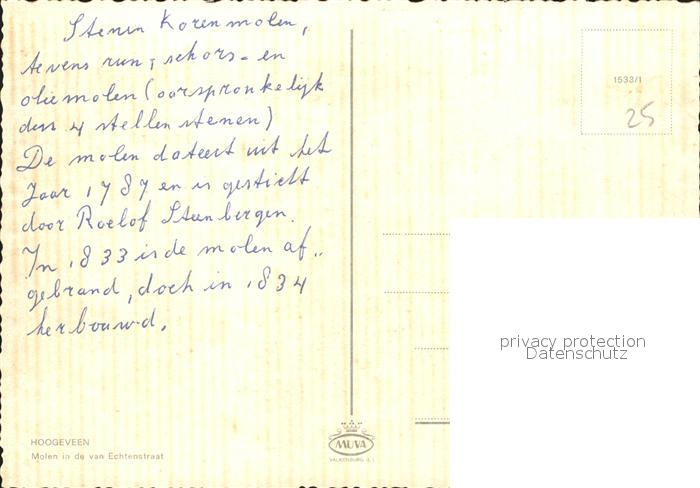 Stenen Korenmolen,
tevens run, schors- en
oliemolen (oorspronkelijk
dus 4 stellen stenen)
De molen dateert uit het
Jaar 1787 en is gesticht
door Roelof Steenbergen.
In 1833 is de molen af..
gebrand, doch in 1834
herbouwd.
HOOGEVEEN
Molen in de van Echtenstraat
MUVA
VALKENBURG
1533/1
25
privacy protection
Datenschutz